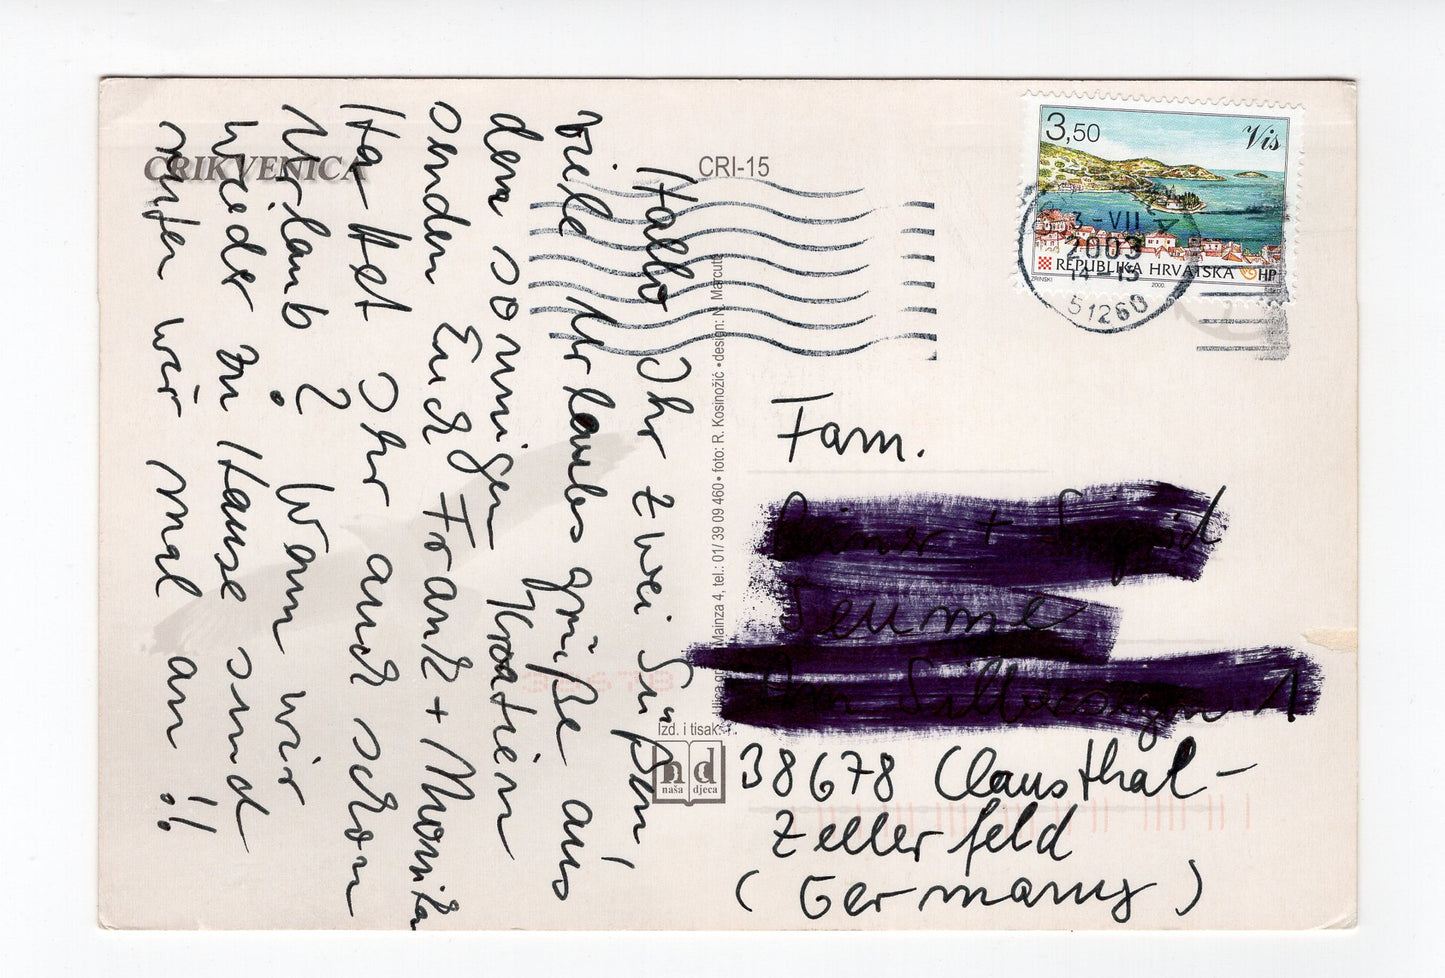 CRIKVENICA
CRI-15
Hallo Ihr zwei Süßen!
viele Urlaubsgrüße aus
dem sonnigen Kroatien
senden Euch Frank + Monika
Hattet Ihr auch schon
Urlaub? Wenn wir
wieder zu Hause sind
rufen wir mal an!!
Mainza 4, tel.: 01/ 39 09 460 • foto: R. Kosinožić • design: N. Marcute
Izd. i tisak:
nd
naša djeca
3,50
Vis
REPUBLIKA HRVATSKA HP
ZRINSKI 2000
3-VII
2003
51260
Fam.
38678 Clausthal-
Zellerfeld
(Germany)